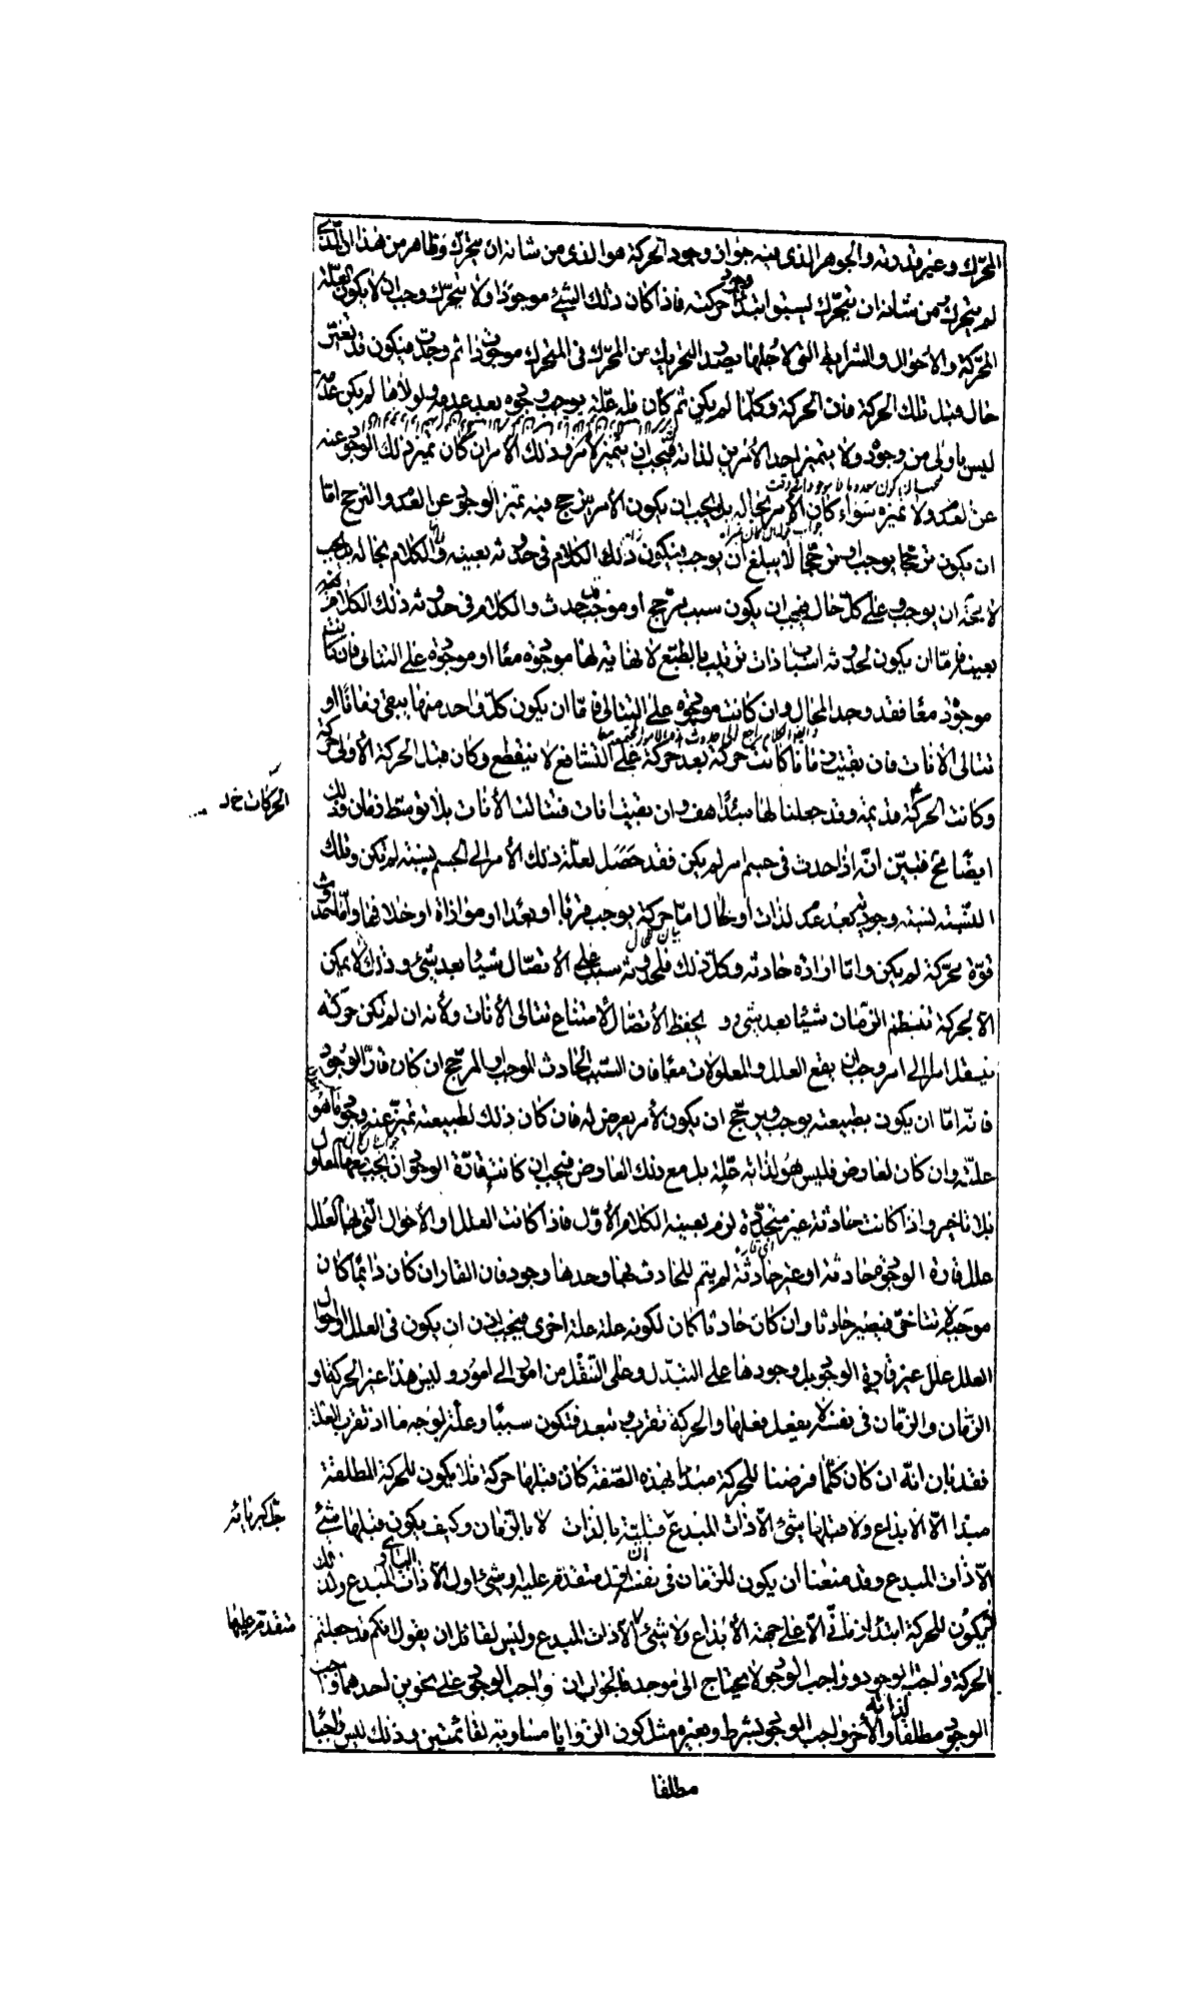 المحرك وغير قدرته والجوهر الذى فيه جواز وجود الحركة هو الذى من شانه ان يتحرك وظاهر من هذا ان الذى
لم يتحرك ومن شانه ان يتحرك يسبق ابتداء وجود حركته فاذا كان ذلك الشئ موجودا ولا يتحرك وجب ان لا يكون العلة
المحركة والاحوال والشرايط التى لاجلها يصدر التحريك من المحرك فى المتحرك موجودة ثم وجدت فيكون قد تغير
حال قبل تلك الحركة فان الحركة وكلما لم يكن ثم كان فله علة يوجب وجوده بعد عدمه ولولاها لم يكن عدمه
ليس باولى من وجوده ولا يتميز احد الامرين لذاته فيجب ان يتميز لامر وذلك الامر ان كان تميز ذلك الوجود عنه
عن العدم ولا تميزه سواء كان الامر بحاله بل يجب ان يكون الامر يترجح فيه تميز الوجود عن العدم والترجح اما
ان يكون ترجحا يوجب او ترجحا لا يبلغ ان يوجب فيكون ذلك الكلام فى حدوثه بعينه والكلام بحاله بل يجب
لا محة ان يوجب وعلى كل حال فيجب ان يكون سبب مرجح او موجب قد حدث والكلام فى حدوثه ذلك الكلام بعينه
بعينه فاما ان يكون لحدوثه اسباب ذات ترتيب بالطبع لا نهاية لها موجودة معا او موجودة على التتالى فان كانت
موجودة معا فقد وجد المحال وان كانت موجودة على التتالى فاما ان يكون كل واحد منها يبقى زمانا او
تتالى الانات فان بقيت زمانا كانت حركة بعد حركة على التشافع لا ينقطع وكان قبل الحركة الاولى حركة
وكانت الحركة قديمة وقد جعلنا لها مبدأ هف وان بقيت انات فتتالت الانات بلا توسط زمان وذلك
ايضا مح فتبين انه اذا حدث فى جسم امر لم يكن فقد حصل لعلة ذلك الامر الى الجسم نسبة لم تكن وتلك
النسبة نسبة وجود بعد عدم لذات او لحال اما حركة يوجب قربا او بعدا او موازاة او خلافها واما حدوث
قوة محركة لم يكن واما ارادة حادثه وكل ذلك فلحدوثه سبب على الاتصال شيئا بعد شئ وذلك لا يمكن
الا بحركة تنظم الزمان شيئا بعد شئ و يحفظ الاتصال لامتناع تتالى الانات ولانه ان لم تكن حركة
تنقل امرا الى امر وجب ان يقع العلل والمعلولات معا فان السبب الحادث الموجب او المرجح ان كان قار الوجود
فانه اما ان يكون بطبيعته يوجب ويرجح ان يكون لامر يعرض له فان كان ذلك لطبيعته تميز عنه وجود ما هو
علته وان كان لعارض فليس هو لذاته علة بل مع ذلك العارض فيجب ان كانت قارة الوجود ان يجب معها المعلول
بلا تاخير واذا كانت حادثة غير متجددة لزم بعينه الكلام الاول فاذا كانت العلل او الاحوال التى بها العلل
علل قارة الوجود حادثة او غير حادثة لم يتم للحادث بها وحدها وجود فان القار ان كان دائما كان
موجبه لا يتاخر فيصير حادثا وان كان حادثا كان لكونه علة علة اخرى فيجب اذن ان يكون فى العلل او احوال
العلل علل غير قارة الوجود بل وجودها على التبدل وعلى التنقل من امور الى امور وليس هذا غير الحركة او
الزمان والزمان فى نفسه لا يفعل فعلها والحركة تقرب وتبعد فتكون سببا وعلة بوجه ما اذ تقرب العلة
فقد بان انه ان كان كلما فرضنا للحركة مبدأ بهذه الصفة كان قبلها حركة فلا يكون للحركة المطلقة
مبدا الا الابداع ولا قبلها شئ الا ذات المبدع قبلية بالذات لا بالزمان وكيف يكون قبلها شئ
الا ذات المبدع وقد منعنا ان يكون للزمان فى نفسه متقدم عليه وشئ اول الا ذات البارى المبدع ولذلك
فيكون للحركة ابتداء زمانى الا على جهة الابداع ولا شئ الا ذات المبدع وليس لقائل ان يقول انكم قد جعلتم
الحركة واجبة الوجود وواجب الوجود لا يحتاج الى موجد فالجواب ان واجب الوجود على نحوين احدهما واجب
الوجود مطلقا لذاته والاخر واجب الوجود بشرط وبغيره مثل كون الزوايا مساوية لقائمتين وذلك ليس واجبا
الحركات خ ل
جل كبرياؤه
متقدم عليها
مطلقا